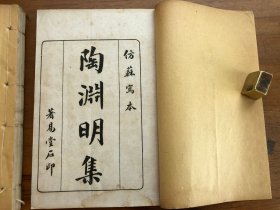 仿蘇寫本
陶淵明集
著易堂石印